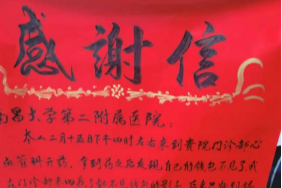 感謝信
南昌大学第二附属医院：
本人二月十五日下午四时左右来到贵院门诊部心
内管科开药，拿到药之后发现，自己的钱包不见了，我